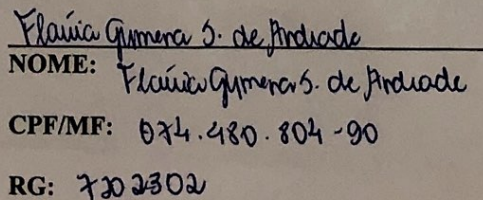 Flávia Gymena S. de Andrade
NOME: Flávia Gymena S. de Andrade
CPF/MF: 074.480.804-90
RG: 7202302